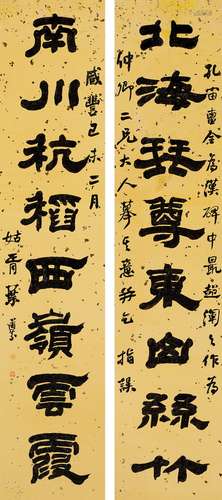 孔宙為漢碑中最超之作為
北海琹尊東山絲竹
仲卿二兄大人摹其意并乞指謬
咸豐己未二月
南川秔稻西嶺雲霞
姑胥葉道芬